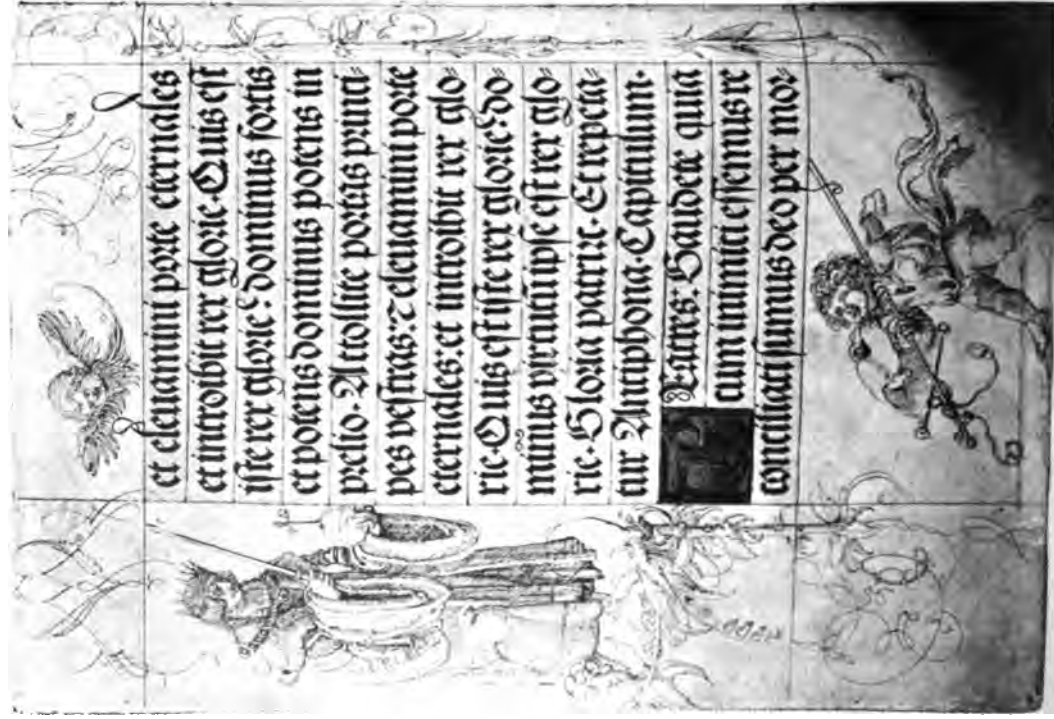 et eleuamini porte eternales
et introibit rex glorie. Quis est
iste rex glorie? dominus fortis
et potens dominus potens in
prelio. Attollite portas princi=
pes vestras: ⁊ eleuamini porte
eternales: et introibit rex glo=
rie. Quis est iste rex glorie? do=
minus virtutũ ipse est rex glo=
rie. Gloria patri ⁊c. Et repeta=
tur Antiphona. Capitulum.
FRatres: Gaudete quia
cum inimici essemus re
conciliati sumus deo per mor=